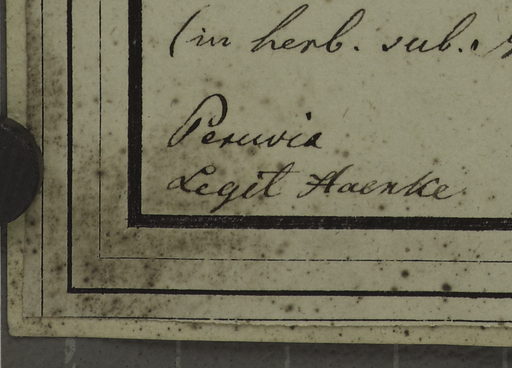 (in herb. sub.
Peruvia
Legit Haenke